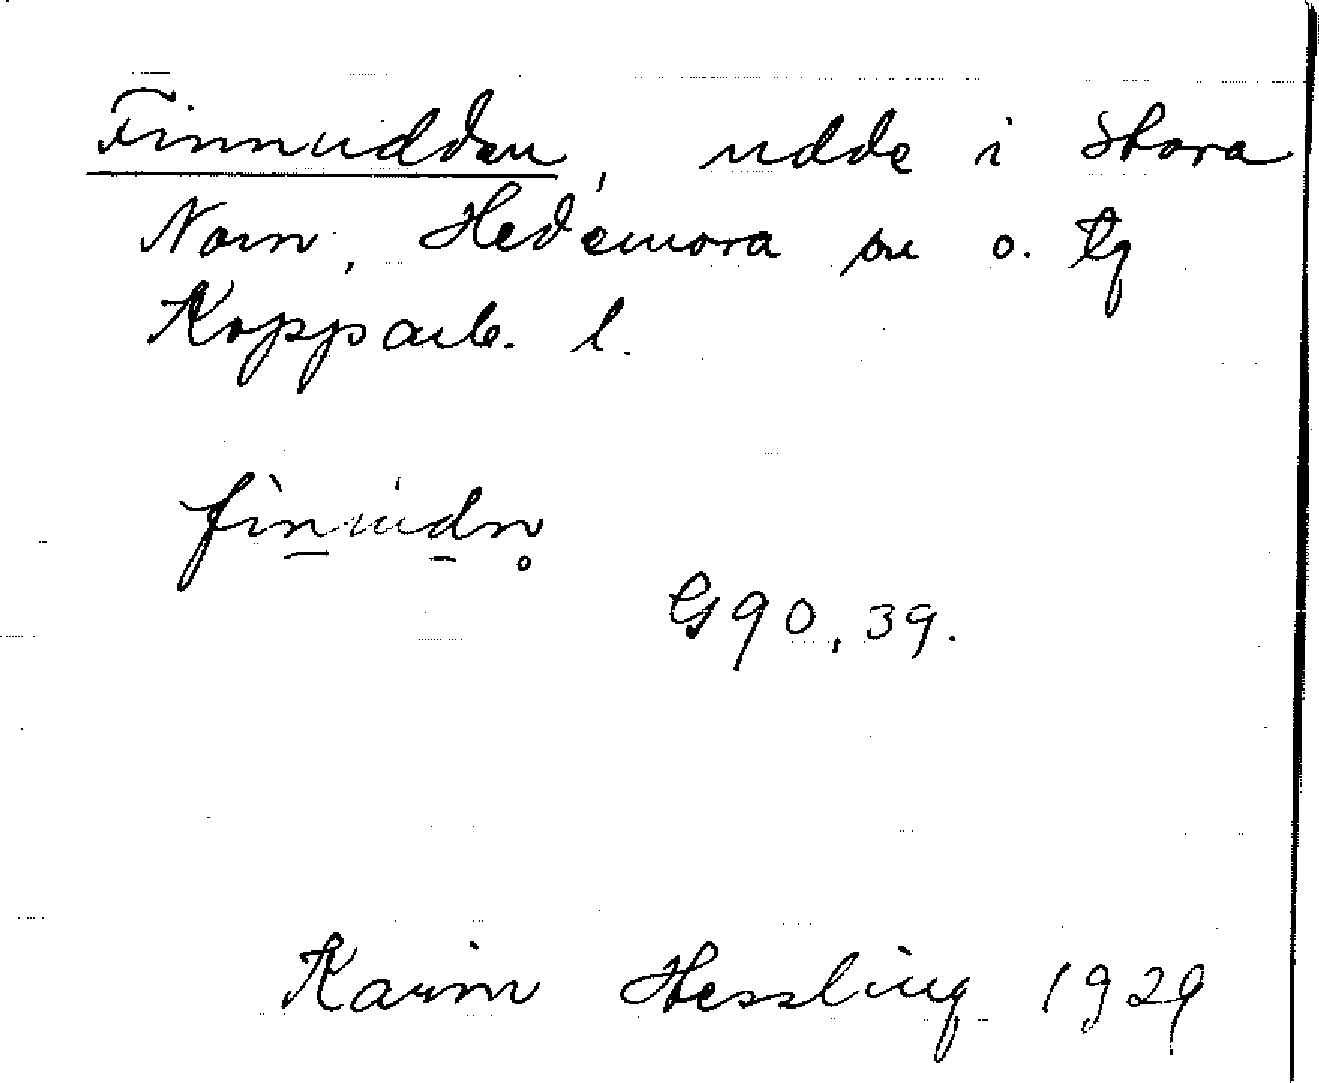 Finnudden, udde i Stora
Norn, Hedemora sn o. tg
Kopparb. l.
G90, 39.
Karin Hessling 1929